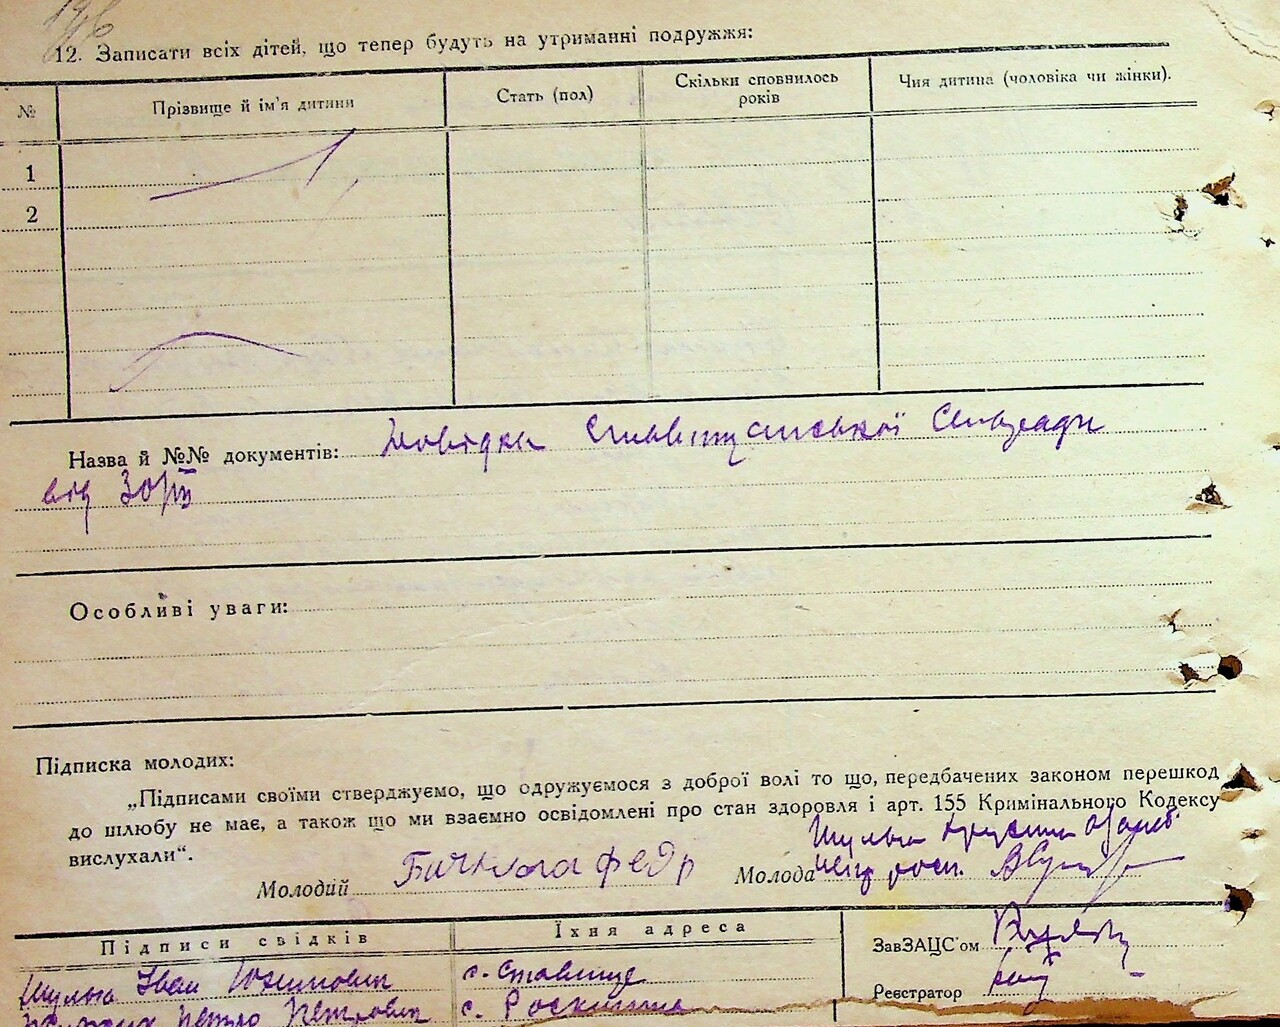 12. Записати всіх дітей, що тепер будуть на утриманні подружжя:
№ Прізвище й ім'я дитини Стать (пол) Скільки сповнилось років Чия дитина (чоловіка чи жінки).
1
2
Назва й №№ документів: Довідка Сільради
від 30/III
Особливі уваги:
Підписка молодих:
„Підписами своїми стверджуємо, що одружуємося з доброї волі то що, передбачених законом перешкод
до шлюбу не має, а також що ми взаємно освідомлені про стан здоровля і арт. 155 Кримінального Кодексу
вислухали“.
Шульга
Молодий Федір Молода
Підписи свідків Їхня адреса ЗавЗАЦС'ом
Шульга Іван Юхимович с. Ставище
Реєстратор
Петро Петрович с.